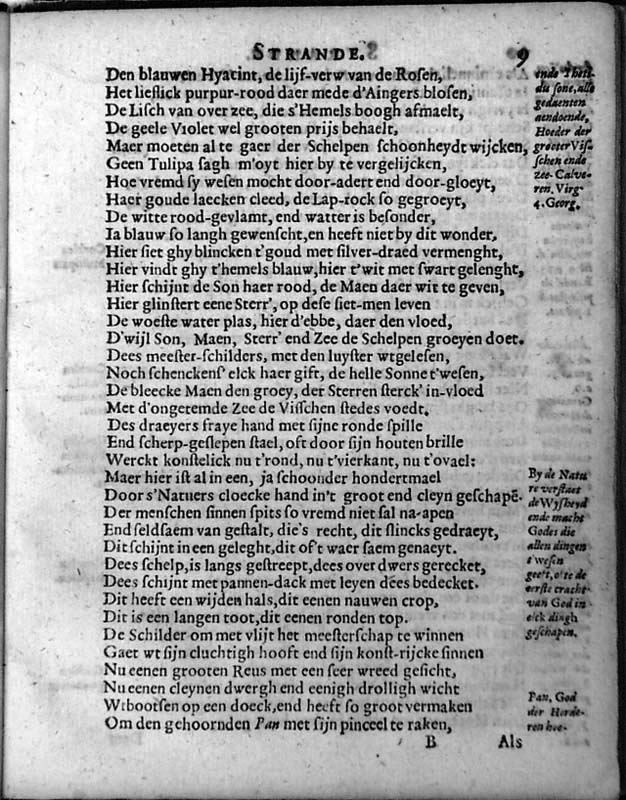 STRANDE. 9
Den blauwen Hyacint, de lijf-verw van de Rosen,
Het lieflick purpur-rood daer mede d'Aingers blosen,
De Lisch van over zee, die s'Hemels boogh afmaelt,
De geele Violet wel grooten prijs behaelt,
Maer moeten al te gaer der Schelpen schoonheydt wijcken,
Geen Tulipa sagh m'oyt hier by te vergelijcken,
Hoe vremd sy wesen mocht door-adert end door-gloeyt,
Haer goude laecken cleed, de Lap-rock so gegroeyt,
De witte rood-gevlamt, end watter is besonder,
Ia blauw so langh gewenscht, en heeft niet by dit wonder,
Hier siet ghy blincken t'goud met silver-draed vermenght,
Hier vindt ghy t'hemels blauw, hier t'wit met swart gelenght,
Hier schijnt de Son haer rood, de Maen daer wit te geven,
Hier glinstert eene Sterr', op dese siet-men leven
De woeste water plas, hier d'ebbe, daer den vloed,
D'wijl Son, Maen, Sterr' end Zee de Schelpen groeyen doet.
Dees meester-schilders, met den luyster wtgelesen,
Noch schenckens' elck haer gift, de helle Sonne t'wesen,
De bleecke Maen den groey, der Sterren sterck' in-vloed
Met d'ongetemde Zee de Visschen stedes voedt.
Des draeyers fraye hand met sijne ronde spille
End scherp-geslepen stael, oft door sijn houten brille
Werckt konstelick nu t'rond, nu t'vierkant, nu t'ovael:
Maer hier ist al in een, ja schoonder hondertmael
Door s'Natuers cloecke hand in't groot end cleyn geschapē.
Der menschen sinnen spits so vremd niet sal na-apen
End seldsaem van gestalt, die's recht, dit slincks gedraeyt,
Dit schijnt in een geleght, dit of't waer saem genaeyt.
Dees schelp, is langs gestreept, dees over dwers gerecket,
Dees schijnt met pannen-dack met leyen dees bedecket.
Dit heeft een wijden hals, dit eenen nauwen crop,
Dit is een langen toot, dit eenen ronden top.
De Schilder om met vlijt het meesterschap te winnen
Gaet wt sijn cluchtigh hooft end sijn konst-rijcke sinnen
Nu eenen grooten Reus met een seer wreed gesicht,
Nu eenen cleynen dwergh end eenigh drolligh wicht
Wtbootsen op een doeck, end heeft so groot vermaken
Om den gehoornden Pan met sijn pinceel te raken,
B Als
ende Theti-
dis sone, alle
gedaenten
aendoende,
Hoeder der
grooter Vis-
schen ende
zee-Calve-
ren. Virg.
4. Georg.
By de Natu
re verstaet
de Wijsheyd
ende macht
Godes die
allen dingen
t'wesen
geeft, o'te de
eerste cracht
van God in
elck dingh
geschapen.
Pan, God
der Herde-
ren hoe-